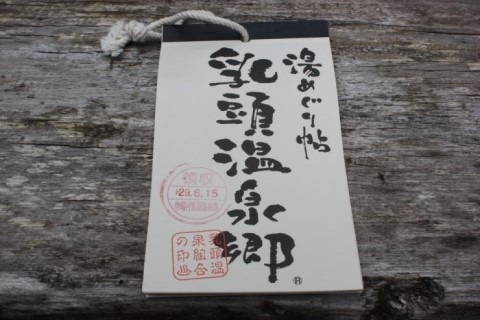 湯めぐり帖
乳頭温泉郷
®
領収
'29.6.15
乳頭温
泉組合
の印